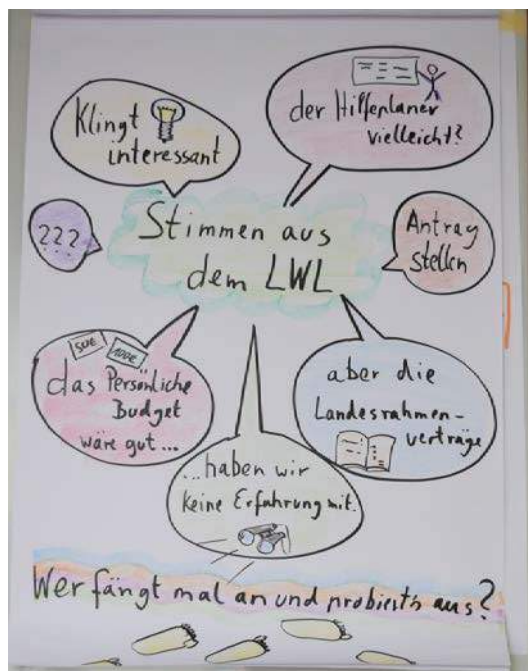 Klingt
interessant
der Hilfeplaner
vielleicht?
???
Stimmen aus
dem LWL
Antrag
stellen
50€ 100€
das Persönliche
Budget
wäre gut...
aber die
Landesrahmen-
verträge
...haben wir
keine Erfahrung mit.
Wer fängt mal an und probiert's aus?